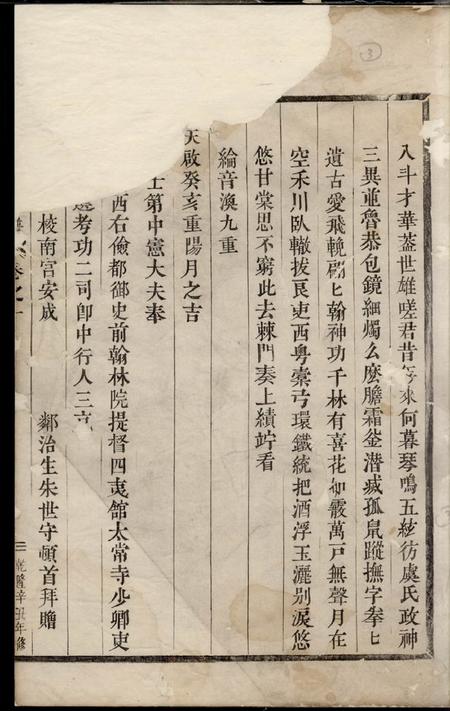 入斗才華蓋世雄嗟君昔年來何暮琴鳴五絃彷虞氏政神
三異並魯恭包鏡細燭么麽膽霜釜潜惑孤鼠蹤撫字拳匕
遺古愛飛輓匕翰神功千林有喜花如霰萬戸無聲月在
空禾川臥轍拔良吏西粵橐弓環鐵統把酒浮玉灑别淚悠
悠甘棠思不窮此去棘門奏上績竚看
綸音渙九重
天啟癸亥重陽月之吉
士第中憲大夫奉
西右僉都御史前翰林院提督四夷館太常寺少卿吏
考功二司郎中行人三
稜南宮安成 鄰治生朱世守頓首拜贈
卷之一 三 乾隆辛丑年修
3